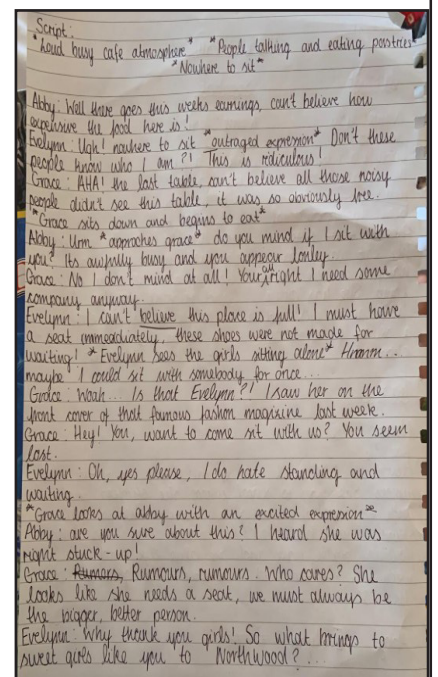 Script:
*Loud busy cafe atmosphere* *People talking and eating pastries*
*Nowhere to sit*
Abby: Well there goes this weeks earnings, can't believe how
expensive the food here is!
Evelynn: Ugh! nowhere to sit *outraged expression* Don't these
people know who I am?! This is ridiculous!
Grace: AHA! the last table, can't believe all those noisy
people didn't see this table, it was so obviously free.
*Grace sits down and begins to eat*
Abby: Um *approaches grace* do you mind if I sit with
you? Its awfully busy and you appear lonley.
Grace: No I don't mind at all! Your all right I need some
company anyway.
Evelynn: I can't believe this place is full! I must have
a seat immeadiately, these shoes were not made for
waiting! *Evelynn sees the girls sitting alone* Hmmm...
maybe I could sit with somebody for once...
Grace: Woah... Is that Evelynn?! I saw her on the
front cover of that famous fashon magixine last week.
Grace: Hey! You, want to come sit with us? You seem
lost.
Evelynn: Oh, yes please, I do hate standing and
waiting.
*Grace looks at abby with an excited expression*
Abby: are you sure about this? I heard she was
right stuck-up!
Grace: Rumors, Rumours, rumours. Who cares? She
looks like she needs a seat, we must always be
the bigger, better person.
Evelynn: Why thank you girls! So what brings to
sweet girls like you to Northwood?...